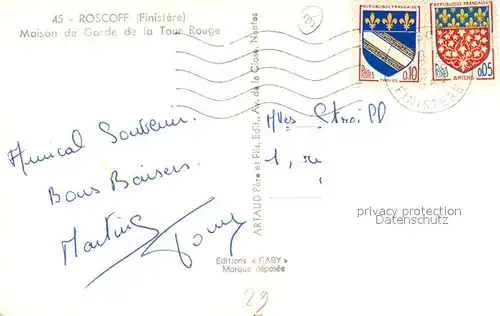 45 - ROSCOFF (Finistère)
Maison de Garde de la Tour Rouge
45
REPUBLIQUE FRANÇAISE
Postes 0,10
TROYES
REPUBLIQUE FRANÇAISE
Postes 0,05
AMIENS
FINISTERE
Amical Souvenir.
Bons Baisers
Martine
ARTAUD Père et Fils, Edit., Av. de la Close, Nantes
Mves
1, r
privacy protection
DARKROOM
Editions « GABY »
Marque déposée
29